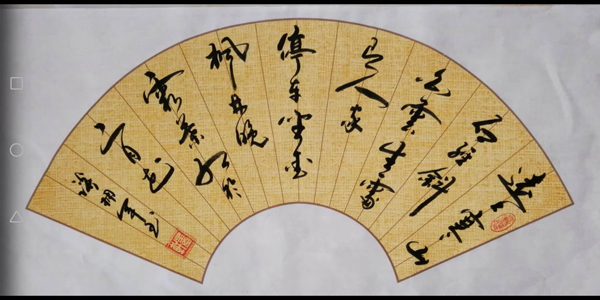 遠上寒山
石径斜
白雲生處
有人家
停车坐爱
枫林晚
霜葉红於
二月花